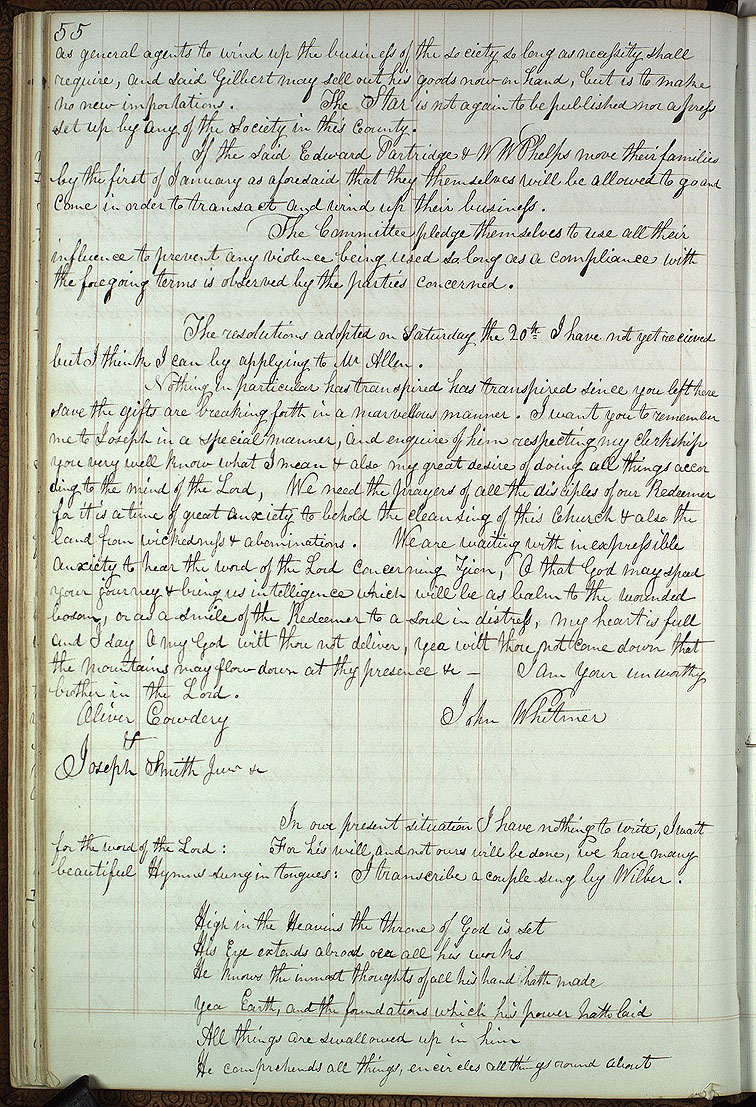 55
as general agents to wind up the business of the society so long as necessity shall
require, and said Gilbert may sell out his goods now on hand, but is to make
no new importations. The Star is not again to be published nor a press
set up by any of the society in this County.
If the said Edward Partridge & W W Phelps move their families
by the first of January as aforesaid that they themselves will be allowed to go and
come in order to transact and wind up their business.
The Committee pledge themselves to use all their
influence to prevent any violence being used so long as a compliance with
the foregoing terms is observed by the parties concerned.
The resolutions adopted on Saturday the 20th I have not yet recieved
but I think I can by applying to Mr Allen.
Nothing in particular has transpired has transpired since you left here
save the gifts are breaking forth in a marvellous manner. I want you to remember
me to Joseph in a special manner, and enquire of him respecting my clerkship
you very well know what I mean & also my great desire of doing all things accor
ding to the mind of the Lord, We need the prayers of all the disciples of our Redeemer
for it is a time of great anxiety to behold the cleansing of this Church & also the
land from wickedness & abominations. We are waiting with inexpressible
anxiety to hear the word of the Lord concerning Zion, O that God may speed
your journey & bring us intelligence which will be as balm to the wounded
bosom, or as a smile of the Redeemer to a soul in distress, my heart is full
and I day O my God wilt thou not deliver, yea wilt thou not come down that
the mountains may flow down at thy presence &c — I am your unworthy
brother in the Lord.
Oliver Cowdery John Whitmer
&
Joseph Smith Junr &c
In our present situation I have nothing to write, I wait
for the word of the Lord: For his will and not ours will be done, we have many
beautiful Hymns sung in tongues: I transcribe a couple sung by Wilber.
High in the Heavens the throne of God is set
His Eye extends abroad oer all his works
He knows the inmost thoughts of all his hand hath made
yea Earth, and the foundations which his power hath laid
All things are swallowed up in him
He comprehends all things, encircles all things round about